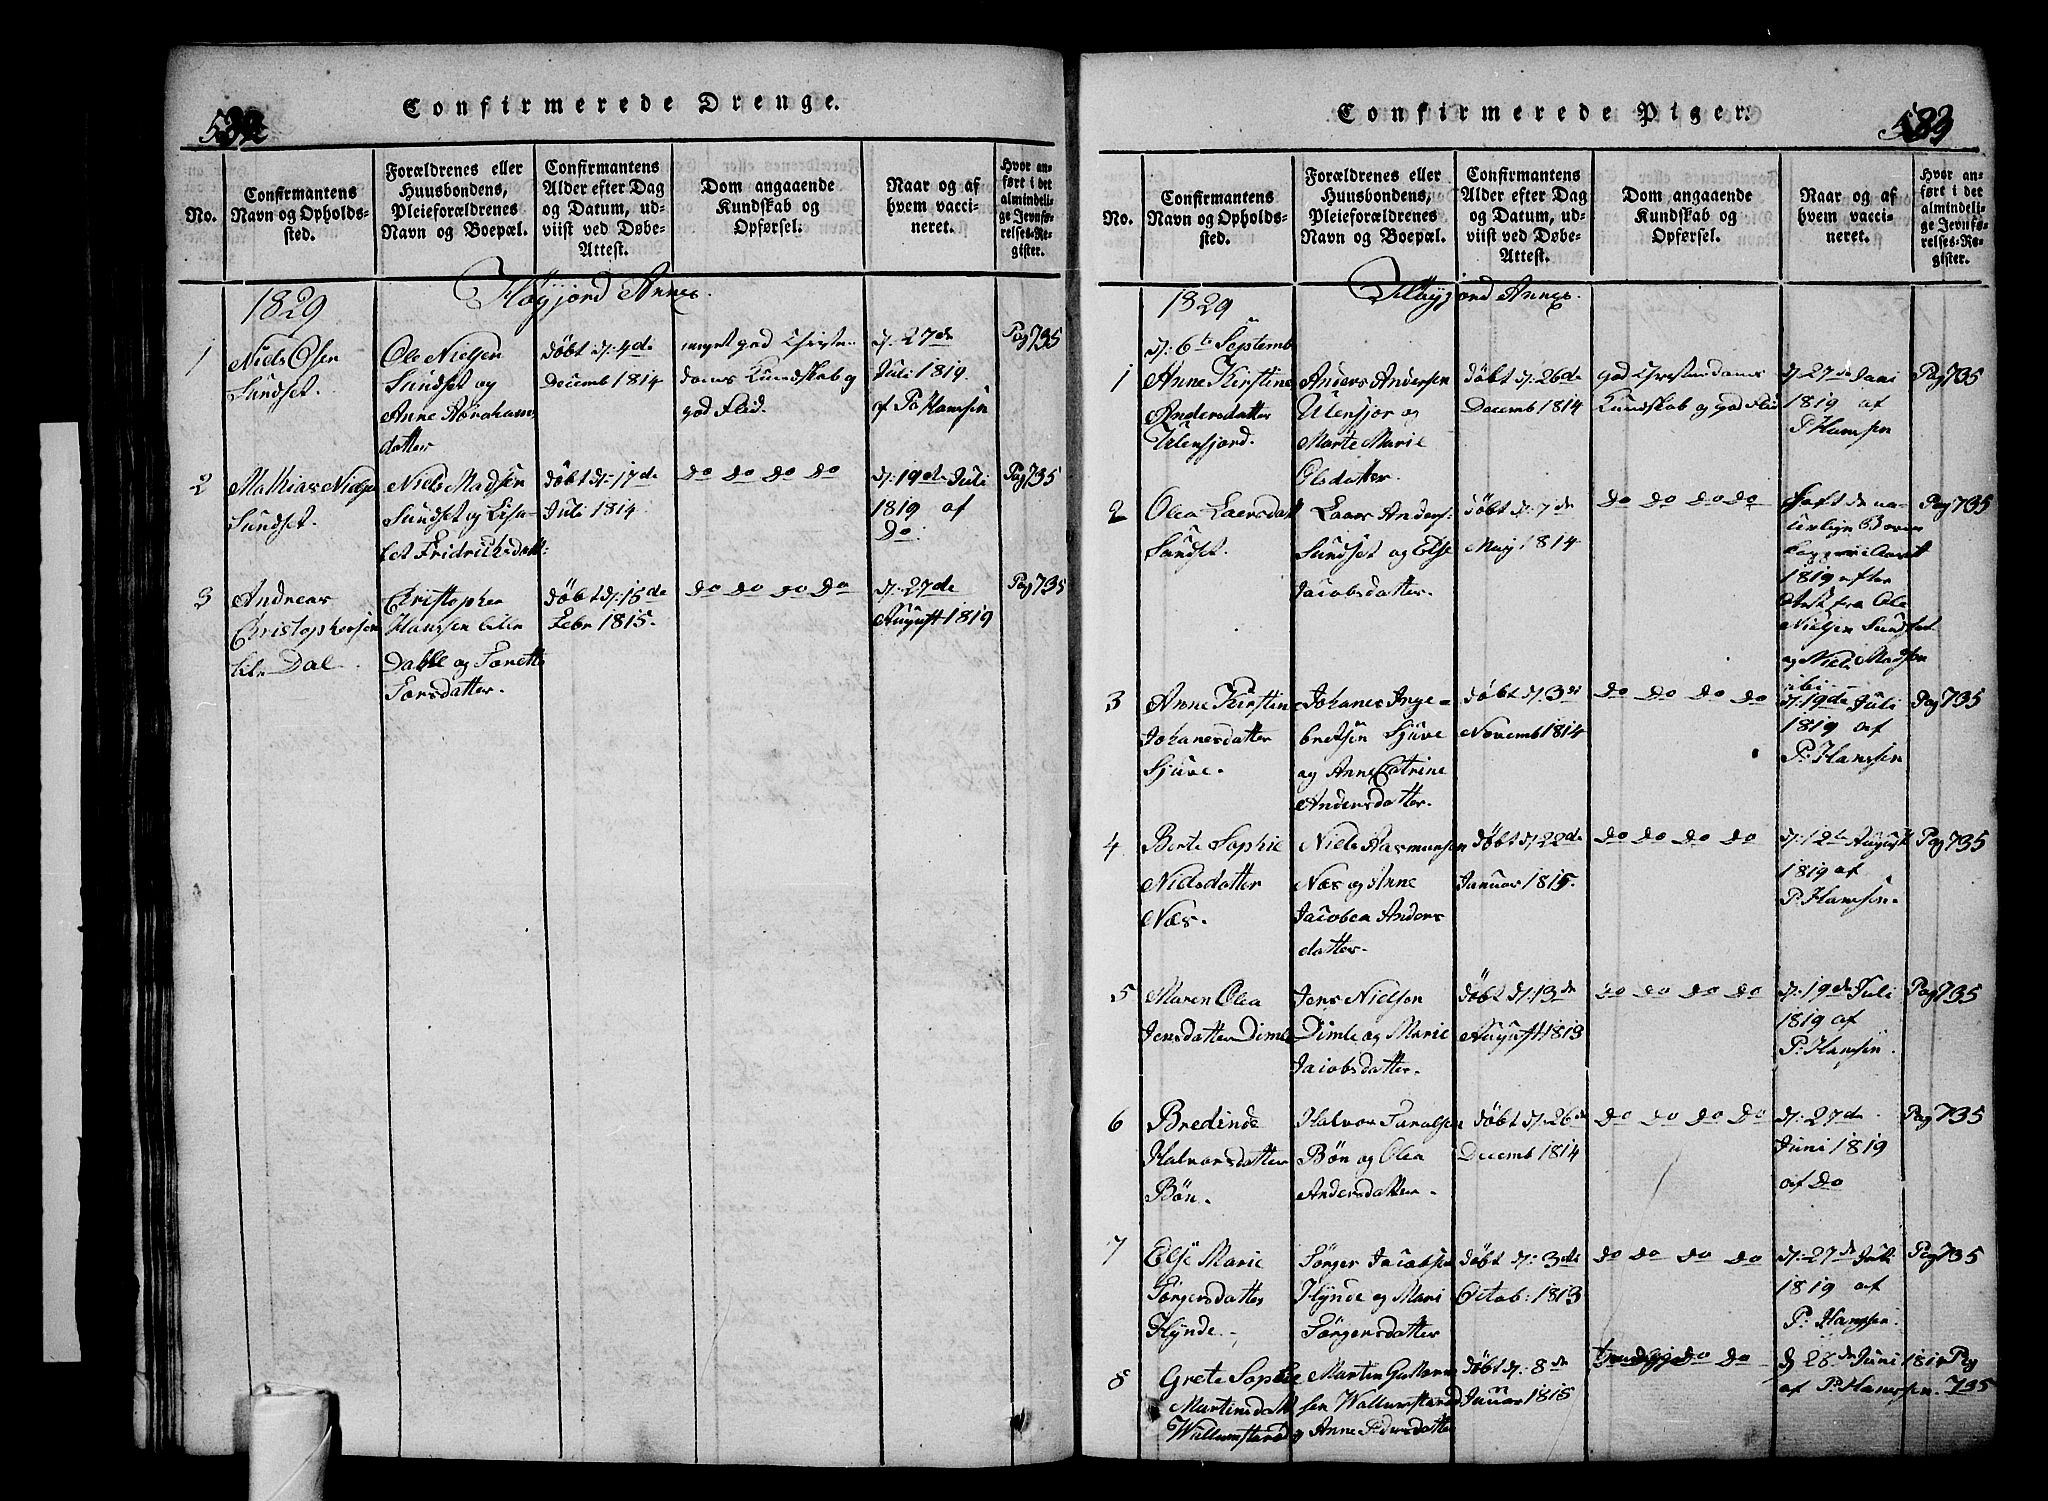 Confirmerede Drenge.
No.
Confirmantens
Navn og Opholds-
sted.
Forældrenes eller
Huusbondens,
Pleieforældrenes
Navn og Boepæl.
Confirmantens
Alder efter Dag
og Datum, ud-
viist ved Døbe-
Attest.
Dom angaaende
Kundskab og
Opførsel.
Naar og af
hvem vacci-
neret.
Hvor an-
ført i det
almindeli-
ge Jevnfø-
relses-Re-
gister.
1829
Høyjord Annex.
1
Niels Olsen
Sundset.
Ole Nielsen
Sundset og
Anne Abrahams
datter
døbt d: 4de
Decemb 1814
meget god Christen
doms Kundskab og
god Flid.
d: 27de
Juli 1819.
af P. Hansen
Pag 735
2
Mathias Nielsen
Sundset.
Niels Madsen
Sundset og Lisa-
bet Fridrichsdatt:
døbt d: 17de
Juli 1814.
do do do do
d: 19de Juli
1819 af
Do.
Pag 735
3
Andreas
Christophersen
Dal.
Christopher
Hanssen
Dahle og
Torsdatter.
døbt d: 15de
Febr 1815.
do do do do
d: 27de
August 1819
Pag 735
Confirmerede Piger.
583
No.
Confirmantens
Navn og Opholds-
sted.
Forældrenes eller
Huusbondens,
Pleieforældrenes
Navn og Boepæl.
Confirmantens
Alder efter Dag
og Datum, ud-
viist ved Døbe-
Attest.
Dom angaaende
Kundskab og
Opførsel.
Naar og af
hvem vacci-
neret.
Hvor an-
ført i det
almindeli-
ge Jevnfø-
relses-Re-
gister.
1829
Høyjord Annex.
d: 6te Septemb
1
Anne Kirstine
Andersdatter
Ulensjord.
Anders Andersen
Ulensjor og
Marte Marie
Olsdatter.
døbt d: 26de
Decemb 1814
god Christendoms
Kundskab og god Flid
d: 27de Juni
1819 af
P Hansen
Pag 735
2
Olea Laersdatt
Sundset.
Laers Anders:
Sundset og Else
Jacobsdatter.
døbt d: 7de
May 1814
do do do do
haft de na-
turlige
Kopper i Aaret
1819 efter
Attest fra Ole
Nielsen Sundset
og Niels Madsen
ibi
Pag 735
3
Anne Kirstin
Johanesdatter
Sjuve.
Johanes Inge-
bretsen Sjuve
og Anne Catrine
Andersdatter.
døbt d: 3di
Novemb 1814
do do do do
d: 19de Juli
1819 af
P: Hanssen
Pag 735
4
Berte Sophie
Nielsdatter
Næs.
Niels Rasmussen
Næs og Anne
Jacobea Anders
datter.
døbt d: 22de
Januar 1815.
do do do do
d: 12te August
1819 af
P: Hanssen.
Pag 735
5
Maren Olea
Jensdatter Dimle
Jens Nielsen
Dimle og Marie
Jacobsdatter.
døbt d: 13de
August 1813
do do do do
d: 19de Juli
1819 af
P: Hanssen.
Pag 735
6
Bredinde
Halvorsdatter
Bøn.
Halvor
Bøn og Olea
Andersdatter.
døbt d: 26de
Decemb 1814
do do do do
d: 27de
Juni 1819
af do
Pag 735
7
Else Marie
Törgersdatter
Hynde.
Törger Jacobsen
Hynde og Mari
Törgersdatter
døbt d: 3de
Octob: 1813
do do do do
d: 27de Juli
1819 af
P: Hanssen.
Pag 735
8
Grete Sophie
Martinsdatt
Wallumstand
Martin
sen Wallumstand
og Anne Pedersdatter
døbt d: 8de
Januar 1815
do do
d 28de Juni 1819
af P: Hanssen.
Pag
735